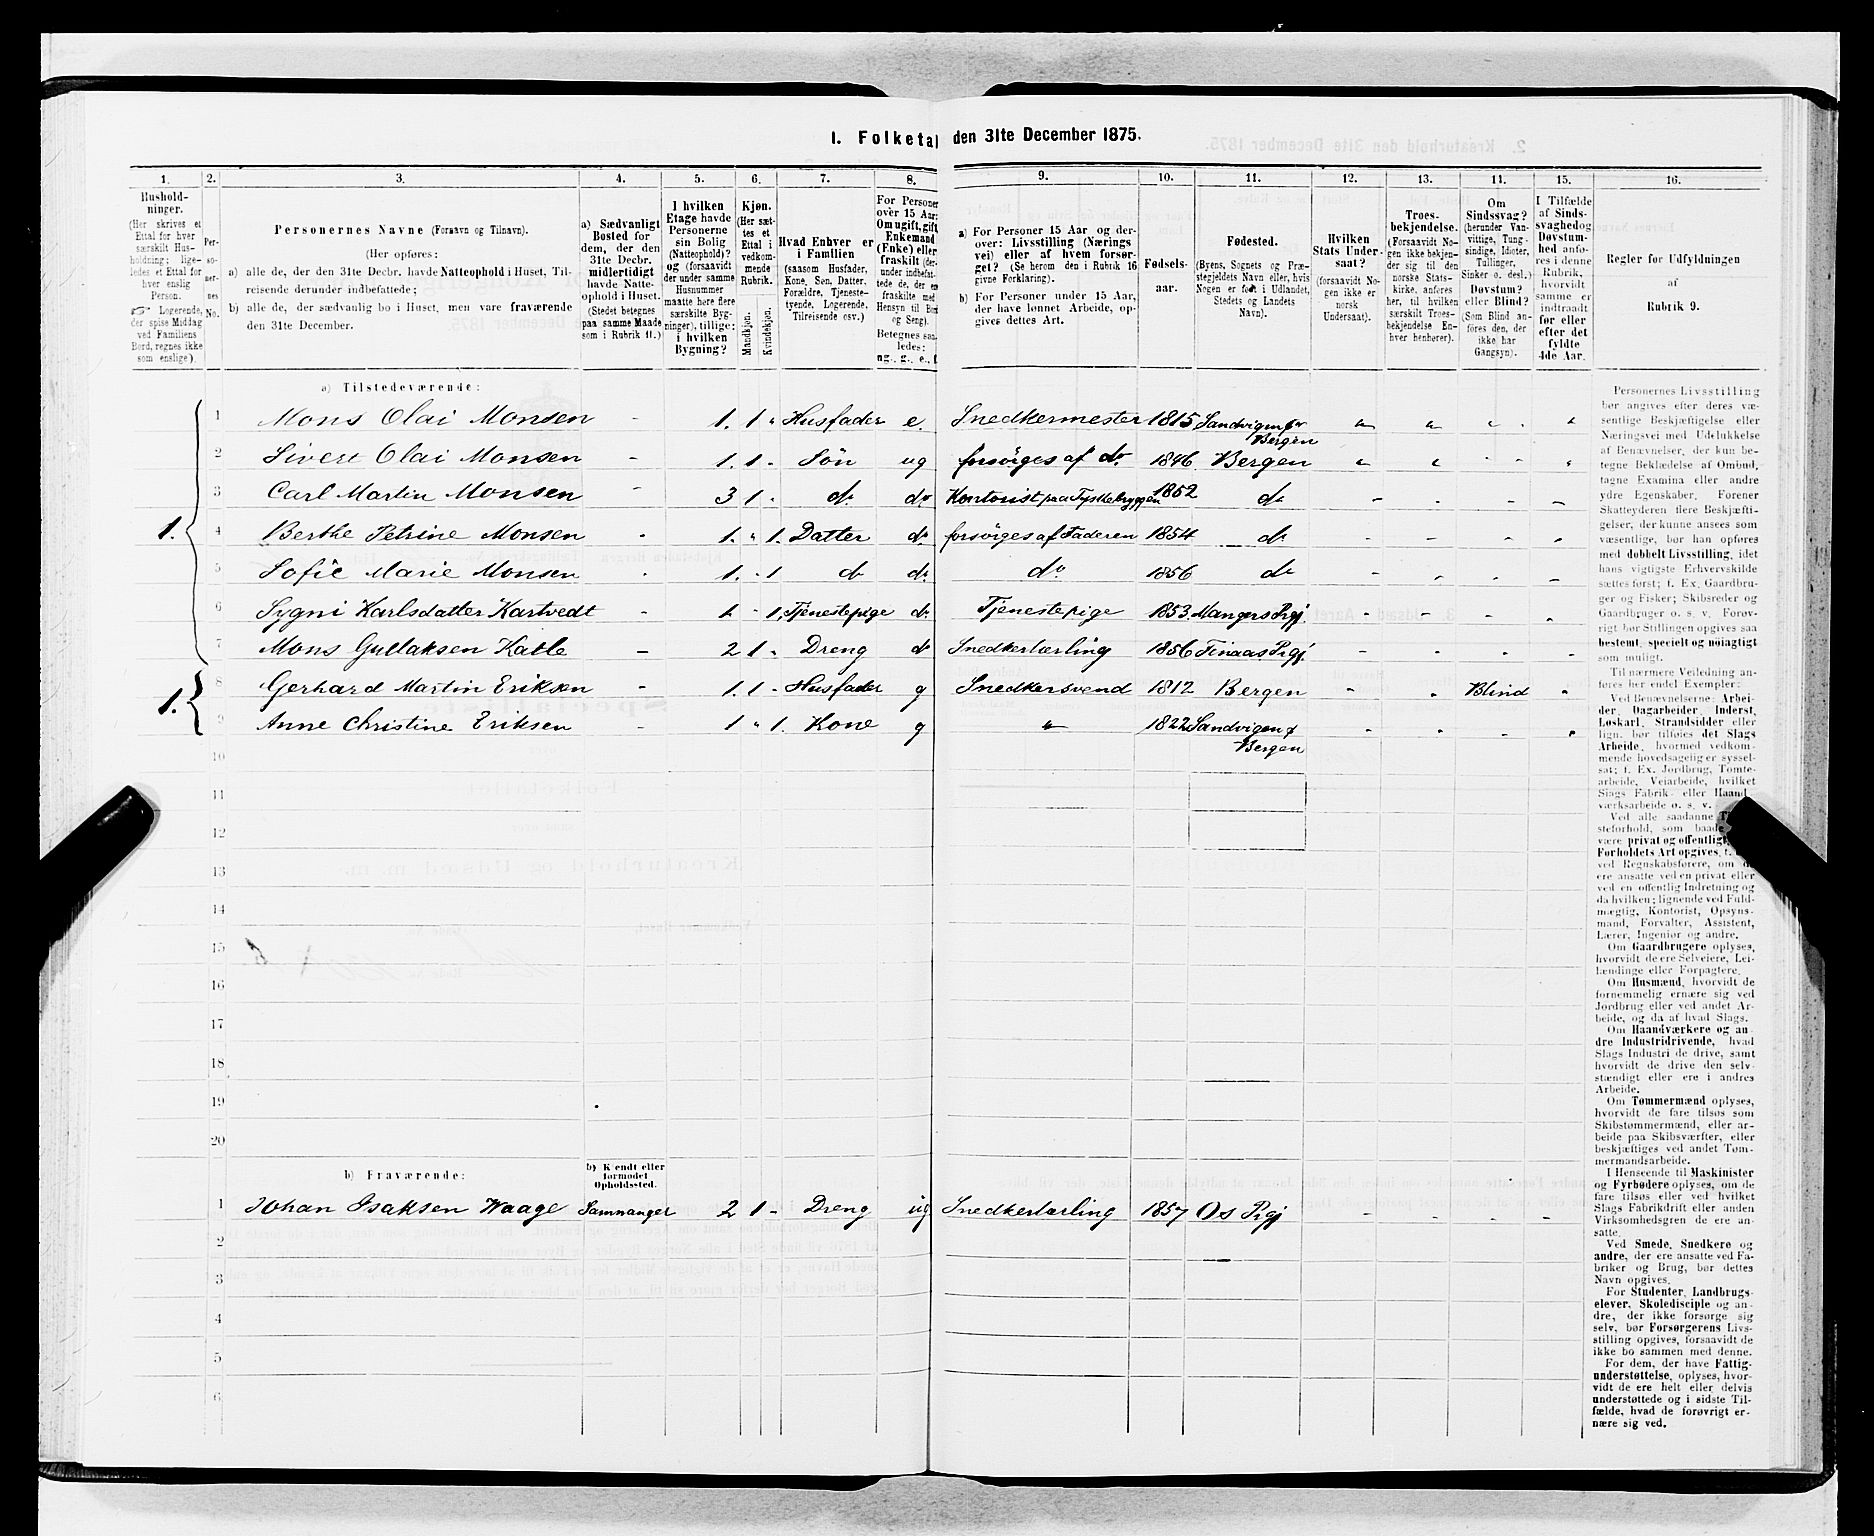 1. Folketal den 31te December 1875.
1. 2. 3. 4. 5. 6. 7. 8. 9. 10. 11. 12. 13. 14. 15. 16.
Hushold-
ninger.
(Her skrives et
Ettal for hver
særskilt Hus-
holdning; lige-
ledes et Ettal for
hver enslig
Person.
☞ Logerende,
der spise Middag
ved Familiens
Bord, regnes ikke
som enslige).
Per-
so-
ner-
nes
No.
Personernes Navne (Fornavn og Tilnavn).
(Her opføres:
a) alle de, der den 31te Decbr. havde Natteophold i Huset, Til-
reisende derunder indbefattede;
b) alle de, der sædvanlig bo i Huset, men vare fraværende
den 31te December.
a) Sædvanligt
Bosted for
dem, der den
31te Decbr.
midlertidigt
havde Natte-
ophold i Huset.
(Stedet betegnes
paa samme Maade
som i Rubrik 11.)
I hvilken
Etage havde
Personerne
sin Bolig
(Natteophold)?
og (forsaavidt
der under samme
Husnummer
maatte høre flere
særskilte Byg-
ninger), tillige:
i hvilken
Bygning?
Kjøn.
(Her sæt-
tes et
Ettal i
vedkom-
mende
Rubrik.
Mandkjøn.
Kvindekjøn.
Hvad Enhver er
i Familien
(saasom Husfader,
Kone, Søn, Datter,
Forældre, Tjeneste-
tyende, Logerende,
Tilreisende osv.)
For Personer
over 15 Aar:
Om ugift, gift,
Enkemand
(Enke) eller
fraskilt (der-
under indbefat-
tede de, der ere
fraskilte med
Hensyn til Bord
og Seng).
Betegnes saa-
ledes:
ug., g., e., f.
a) For Personer 15 Aar og der-
over: Livsstilling (Nærings
vei) eller af hvem forsør-
get? (Se herom den i Rubrik 16
givne Forklaring).
b) For Personer under 15 Aar,
der have lønnet Arbeide, op-
gives dettes Art.
Fødsels-
aar.
Fødested.
(Byens, Sognets og Præ-
stegjeldets Navn eller, hvis
Nogen er født i Udlandet,
Stedets og Landets
Navn).
Hvilken
Stats Under-
saat?
(forsaavidt No-
gen ikke er
norsk
Undersaat).
Troes-
bekjendelse.
(Forsaavidt No-
gen ikke bekjen-
der sig til den
norske Stats-
kirke, anføres
her, til hvilken
særskilt Troes-
bekjendelse En-
hver henhører).
Om
Sindssvag?
(herunder Van-
vittige, Tung-
sindige, Idioter,
Tullinger,
Sinker o. desl.)
Døvstum?
eller Blind?
(Som Blind an-
føres den, der
ikke har
Gangsyn).
I Tilfælde
af Sinds-
svaghed og
Døvstum-
hed anfø-
res i denne
Rubrik,
hvorvidt
samme er
indtraadt
før eller
efter det
fyldte
4de Aar.
Regler for Udfyldningen
af
Rubrik 9.
a) Tilstedeværende:
1. 1 Mons Olai Monsen - 1. 1 " Husfader e. Snedkermester 1815 Sandvigen for Bergen " " " "
2 Sivert Olai Monsen - 1. 1 - Søn ug forsörges af do. 1846 Bergen " " - - "
3 Carl Martin Monsen - 3 1 - do do Kontorist paa Tyskebryggen 1852 do - - - -
4 Berthe Petrine Monsen - 1. " 1. Datter do forsörges af Faderen 1854 do - - - -
5 Sofie Marie Monsen - 1. - 1 do do do 1856 do - - - -
6 Sygni Karlsdatter Kartvedt - 1 - 1. Tjenestepige do Tjenestepige 1853. Mangers Prgj. - - - -
7 Mons Gullaksen Katle - 2 1 - Dreng do Snedkerlærling 1856 Finaas Prgj. - - - -
1. 8 Gerhard Martin Eriksen - 1. 1 - Husfader g Snedkersvend 1812 Bergen - - Blind -
9 Anne Christine Eriksen - 1 " 1. Kone g " 1822 Sandvigen f Bergen - - - -
10
11
12
13
14
15
16
17
18
19
20
b) Fraværende:
b) Kjendt eller
formodet
Opholdssted.
1 Johan Isaksen Waage Samnanger 2 1 - Dreng ug Snedkerlærling 1857 Os Prgj - - - -
2
3
4
5
6
Personernes Livsstilling
bør angives efter deres væ-
sentlige Beskjæftigelse eller
Næringsvei med Udelukkelse
af Benævnelser, der kun be-
tegne Beklædelse af Ombud,
tagne Examina eller andre
ydre Egenskaber. Forener
Skatteyderen flere Beskjæfti-
gelser, der kunne ansees som
væsentlige, bør han opføres
med dobbelt Livsstilling, idet
hans vigtigste Erhvervskilde
sættes først; f. Ex. Gaardbru-
ger og Fisker; Skibsreder og
Gaardbruger o. s. v. Forøv-
rigt bør Stillingen opgives saa
bestemt, specielt og nöiagtigt
som muligt.
Til nærmere Veiledning an-
føres her endel Exempler:
Ved Benævnelserne Arbei-
der, Dagarbeider, Inderst,
Løskarl, Strandsidder eller
lign. bør tilføies det Slags
Arbeide, hvormed vedkom-
mende hovedsagelig er syssel-
sat; f. Ex. Jordbrug, Tomte-
arbeide, Veiarbeide, hvilket
Slags Fabrik- eller Haand-
værksarbeide o. s. v.
Ved alle saadanne
steforhold, som baade
være privat og offentlig,
Forholdets Art opgives, f.
ved Regnskabsførere, om
ere ansatte ved en privat eller
ved en offentlig Indretning og
da hvilken; lignende ved Fuld-
mægtig, Kontorist, Opsyns-
mand, Forvalter, Assistent,
Lærer, Ingeniør og andre.
Om Gaardbrugere oplyses,
hvorvidt de ere Selveiere, Lei-
lændinge eller Forpagtere.
Om Husmænd, hvorvidt de
fornemmelig ernære sig ved
Jordbrug eller ved andet Ar-
beide, og da af hvad Slags.
Om Haandværkere og an-
dre Industridrivende, hvad
Slags Industri de drive, samt
hvorvidt de drive den selv-
stændigt eller ere i andres
Arbeide.
Om Tømmermænd oplyses,
hvorvidt de fare tilsøs som
Skibstømmermænd, eller ar-
beide paa Skibsværfter, eller
beskjæftiges ved andet Tøm-
mermandsarbeide.
I Henseende til Maskinister
og Fyrbødere oplyses, om de
fare tilsøs eller ved hvilket
Slags Fabrikdrift eller anden
Virksomhedsgren de ere an-
satte.
Ved Smede, Snedkere og
andre, der ere ansatte ved Fa-
briker og Brug, bør dettes
Navn opgives.
For Studenter, Landbrugs-
elever, Skoledisciple og an-
dre, der ikke forsørge sig
selv, bør Forsørgerens Livs-
stilling opgives, forsaavidt de
ikke bo sammen med denne.
For dem, der have Fattig-
understøttelse, oplyses, hvor-
vidt de ere helt eller delvis
understøttede og i sidste Til-
fælde, hvad de forøvrigt er-
nære sig ved.